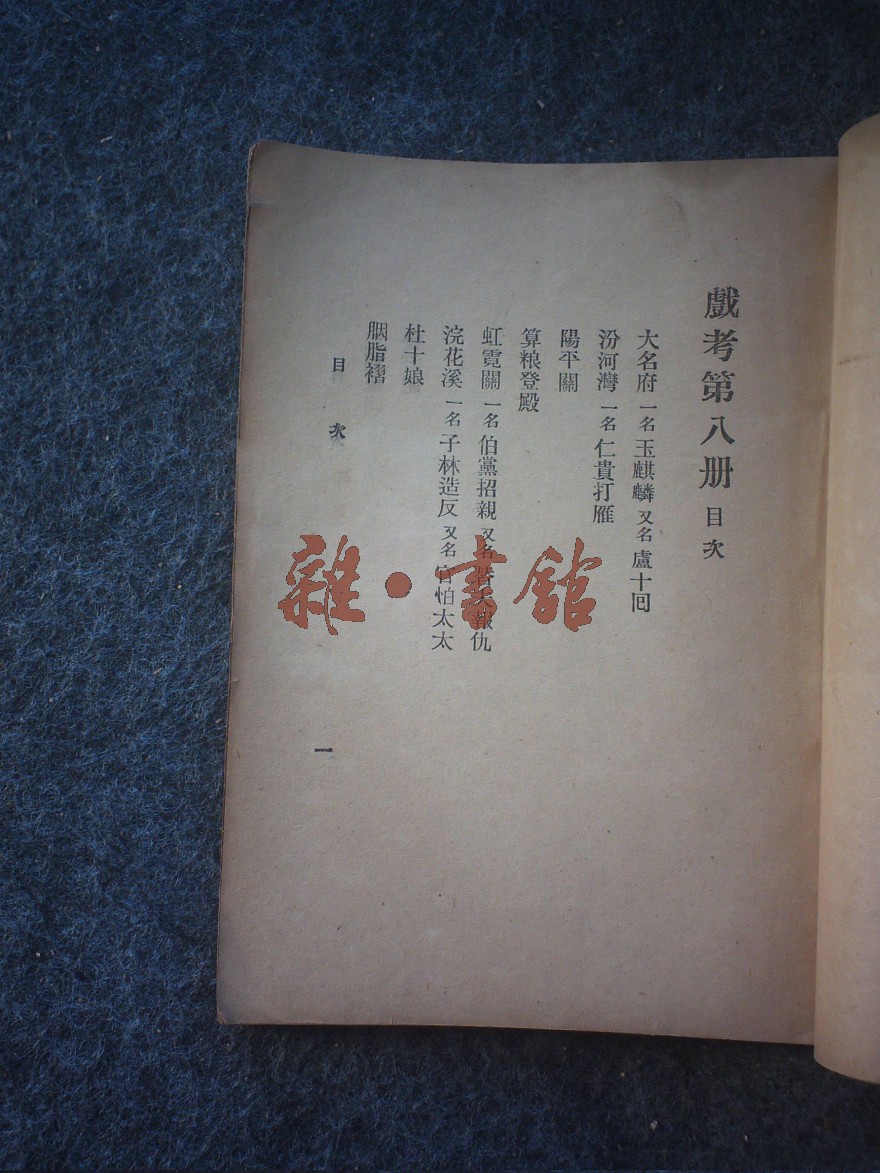 戲考第八册 目次
大名府 一名 玉麒麟 又名 盧十回
汾河灣 一名 仁貴打雁
陽平關
算粮登殿
虹霓關 一名 伯黨招親 又名 替夫報仇
浣花溪 一名 子林造反 又名 官怕太太
杜十娘
胭脂褶
目次
一
雜·書館